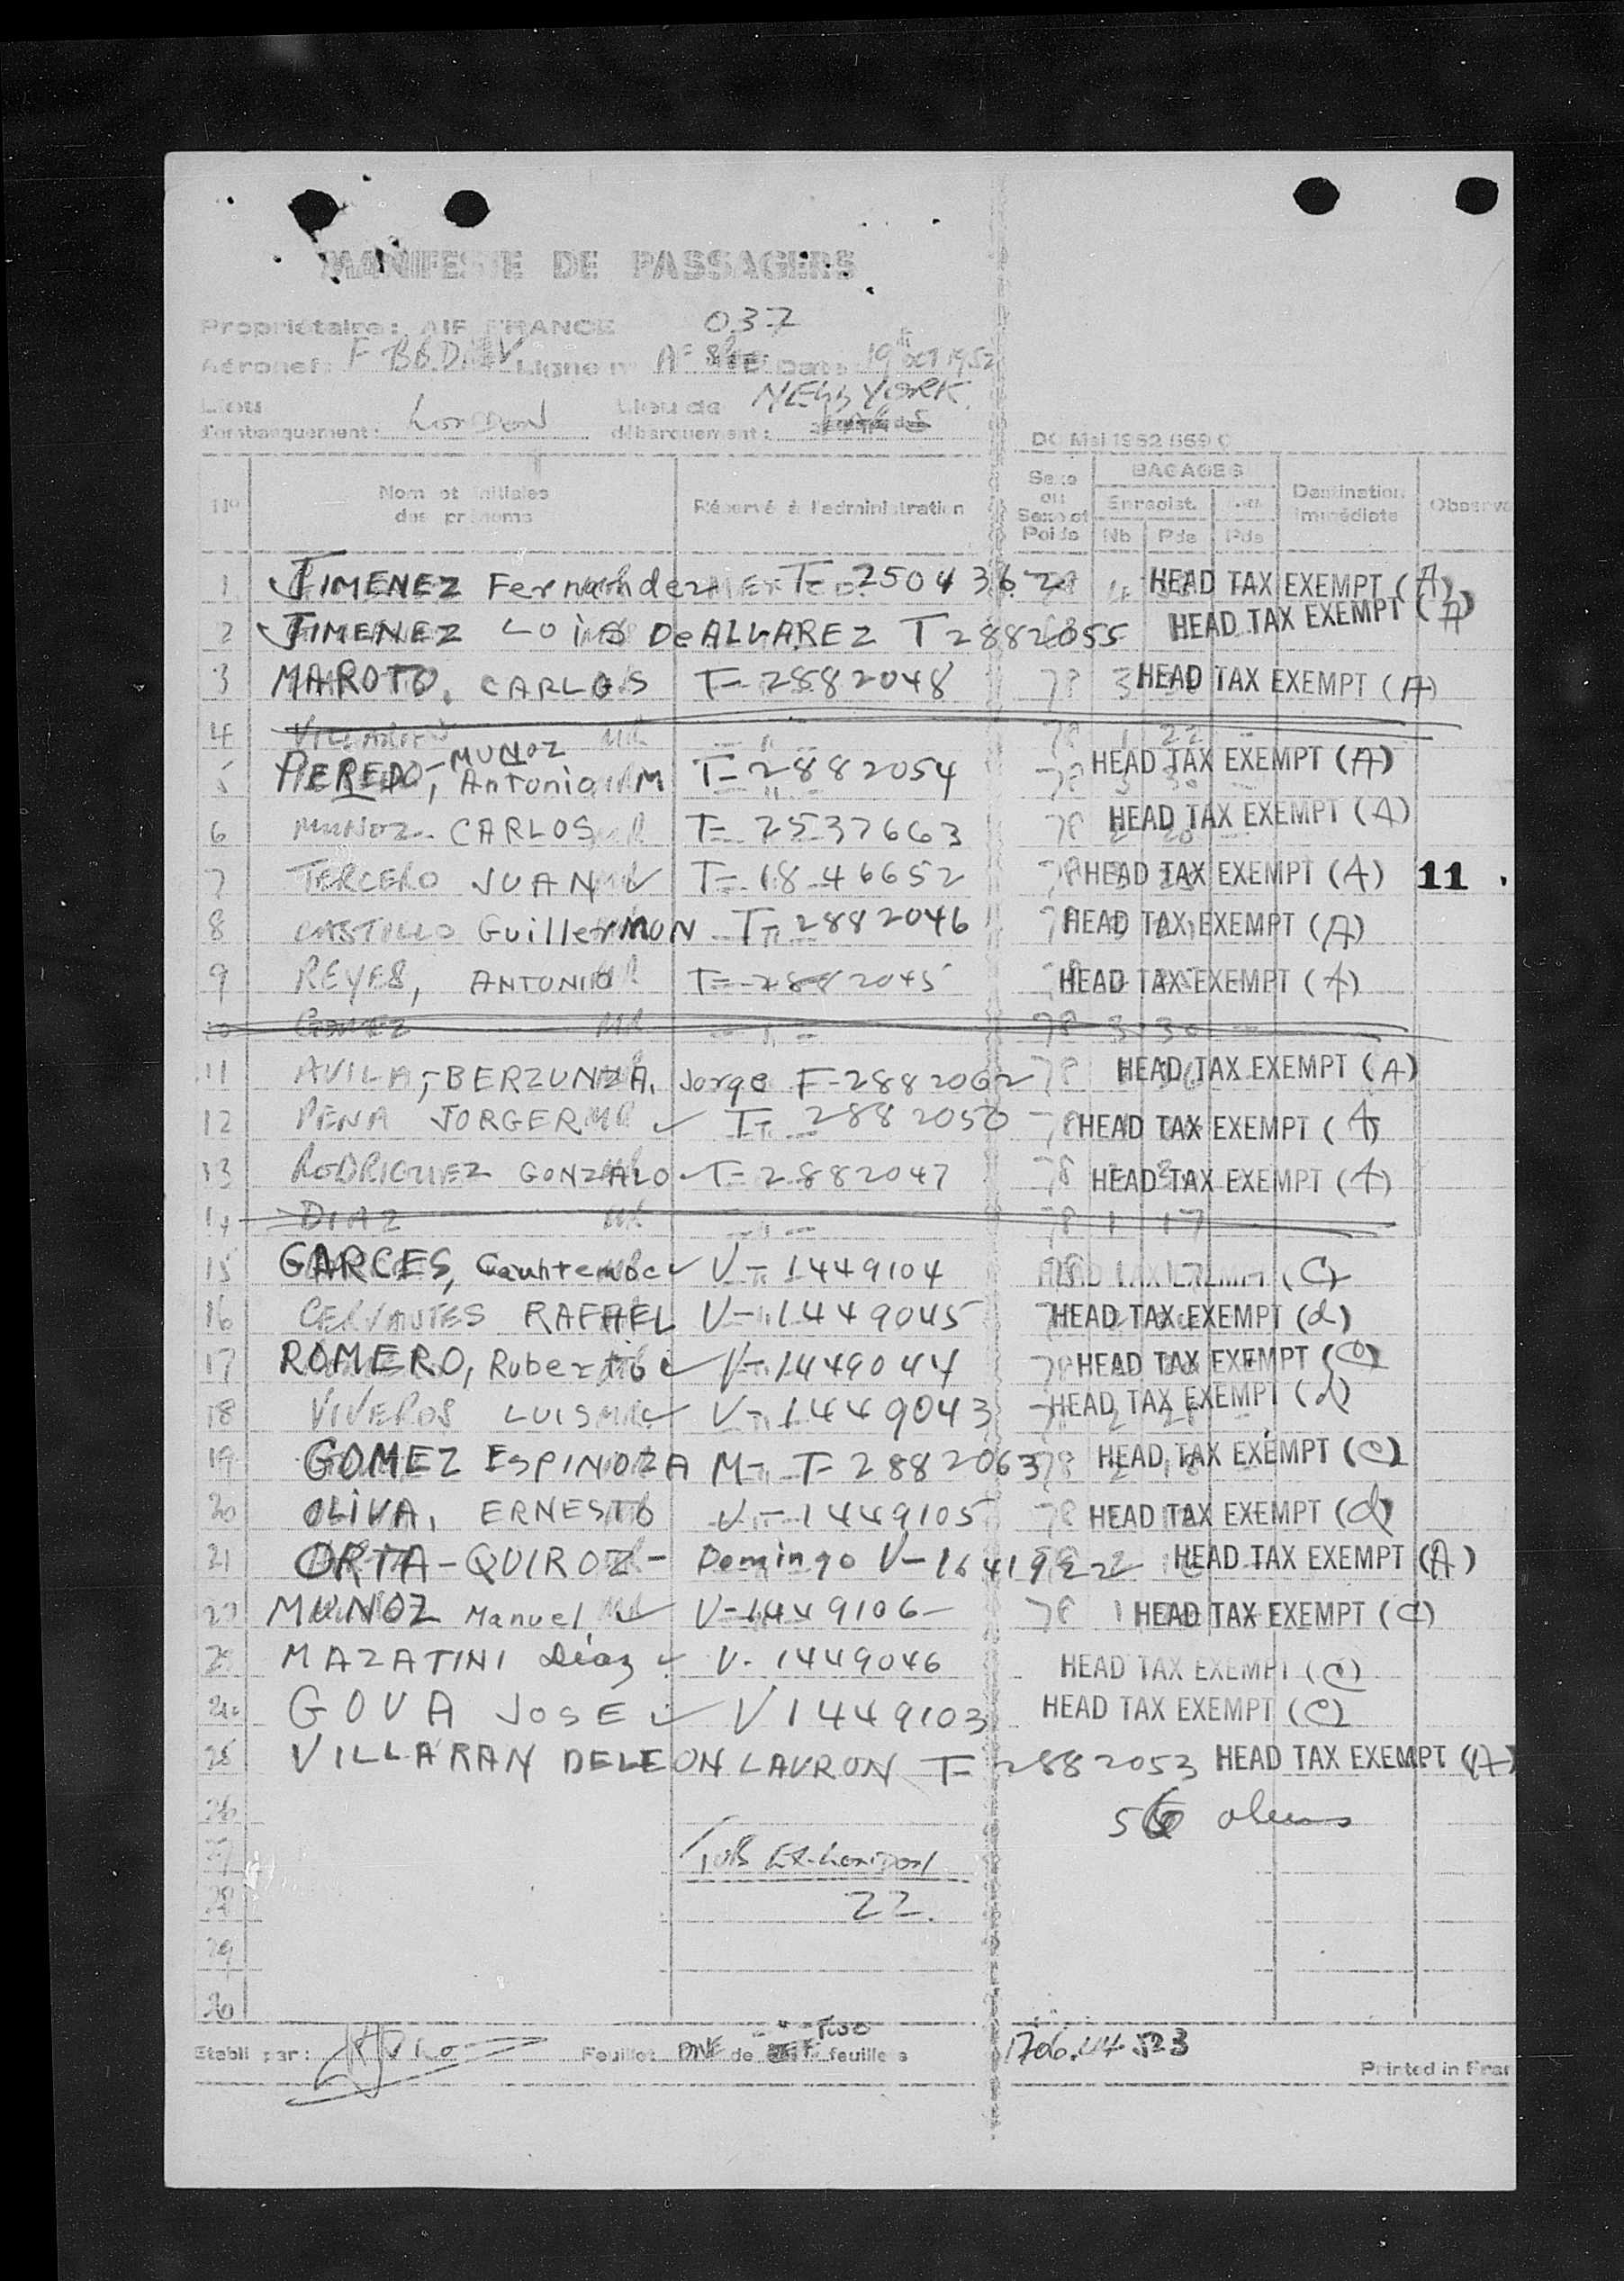 MANIFESTE DE PASSAGERS
Propriétaire: AIR FRANCE 037
Aéronef: Ligne n° AF Date: 19 OCT 1952
Lieu d'embarquement: LONDON Lieu de débarquement: NEW YORK
DC Mai 1952 669 C
N° Nom et initiales des prénoms Réservé à l'administration Sexe ou Sexe et Poids BAGAGES Enregist. Nb Pds Pds Destination immédiate Observa
1 JIMENEZ Fernandez T-2504362 HEAD TAX EXEMPT (A)
2 JIMENEZ LOIS De ALVAREZ T2882055 HEAD TAX EXEMPT (A)
3 MAROTO, CARLOS T-2882048 78 3 HEAD TAX EXEMPT (A)
4 MR 78 1 22
5 PEREDO-MUNOZ, Antonio M T-2882054 HEAD TAX EXEMPT (A)
6 MUNOZ CARLOS T-2537663 78 HEAD TAX EXEMPT (A)
7 TERCERO JUAN T-1846652 HEAD TAX EXEMPT (A) 11
8 CASTILLO GuillerMON T-2882046 HEAD TAX EXEMPT (A)
9 REYES, ANTONIO T-2882045 HEAD TAX EXEMPT (A)
10 GOMEZ MR - " - 78 3 30
11 AVILA,-BERZUNZA, Jorge F-2882062 78 HEAD TAX EXEMPT (A)
12 PENA JORGER MR T-2882050 78 HEAD TAX EXEMPT (A)
13 RODRIGUEZ GONZALO T-2882047 78 HEAD TAX EXEMPT (A)
14 DIAZ MR - " - 78 1 17
15 GARCES, Cauhtemoc V-1449104 HEAD TAX EXEMPT (C)
16 CERVANTES RAFAEL V-1449045 HEAD TAX EXEMPT (d)
17 ROMERO, Ruberto V-1449044 HEAD TAX EXEMPT (C)
18 VIVEROS LUIS MR V-1449043 HEAD TAX EXEMPT (d)
19 GOMEZ ESPINOZA M- T-2882063 78 HEAD TAX EXEMPT (C)
20 OLIVA, ERNESTO V-1449105 78 HEAD TAX EXEMPT (d)
21 ORTA-QUIROZ- Domingo HEAD TAX EXEMPT (A)
22 MUNOZ Manuel V-1449106- 78 1 HEAD TAX EXEMPT (C)
23 MAZATINI Diaz V-1449046 HEAD TAX EXEMPT (C)
24 GOVA JOSE V1449103 HEAD TAX EXEMPT (C)
25 VILLARAN DELEON LAURON T-2882053 HEAD TAX EXEMPT (A)
26
27
28 22.
29
30
Etabli par: Feuillet ONE de TWO feuillets 1706.44 523
Printed in Fran